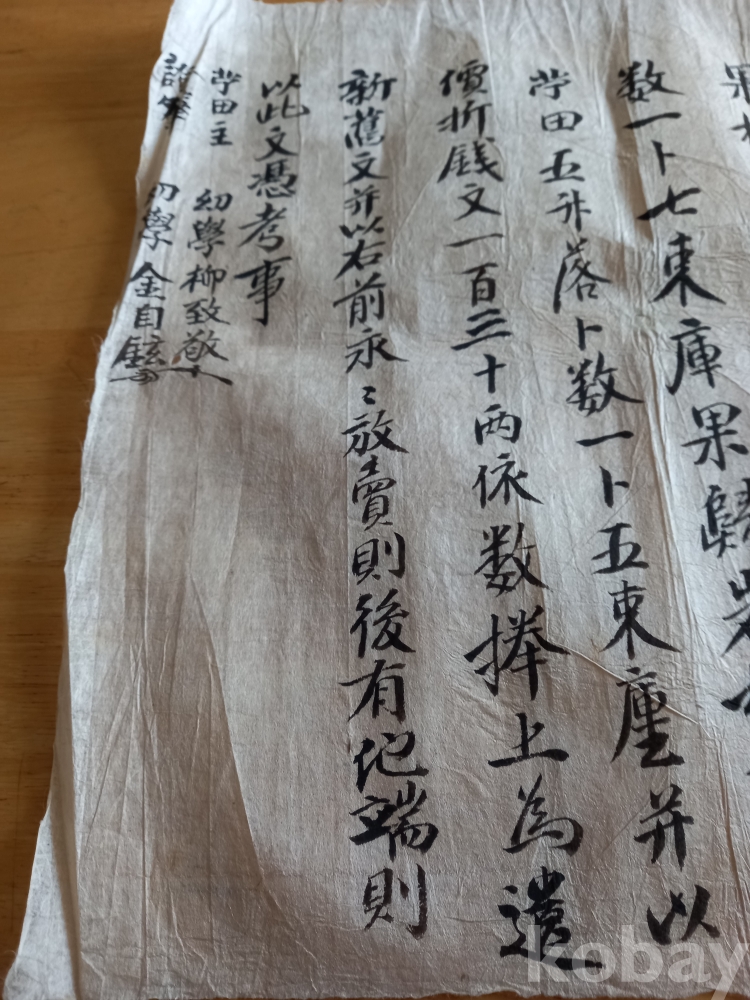 数一卜七束庫果歸
苧田五升落卜数一卜五束㕓并以
價折錢文一百三十两依数捧上為遣
新舊文并以右前永〻放賣則後有他端則
以此文憑考事
苧田主 幼學柳致敬
證筆 幼學金自鉉
kobay